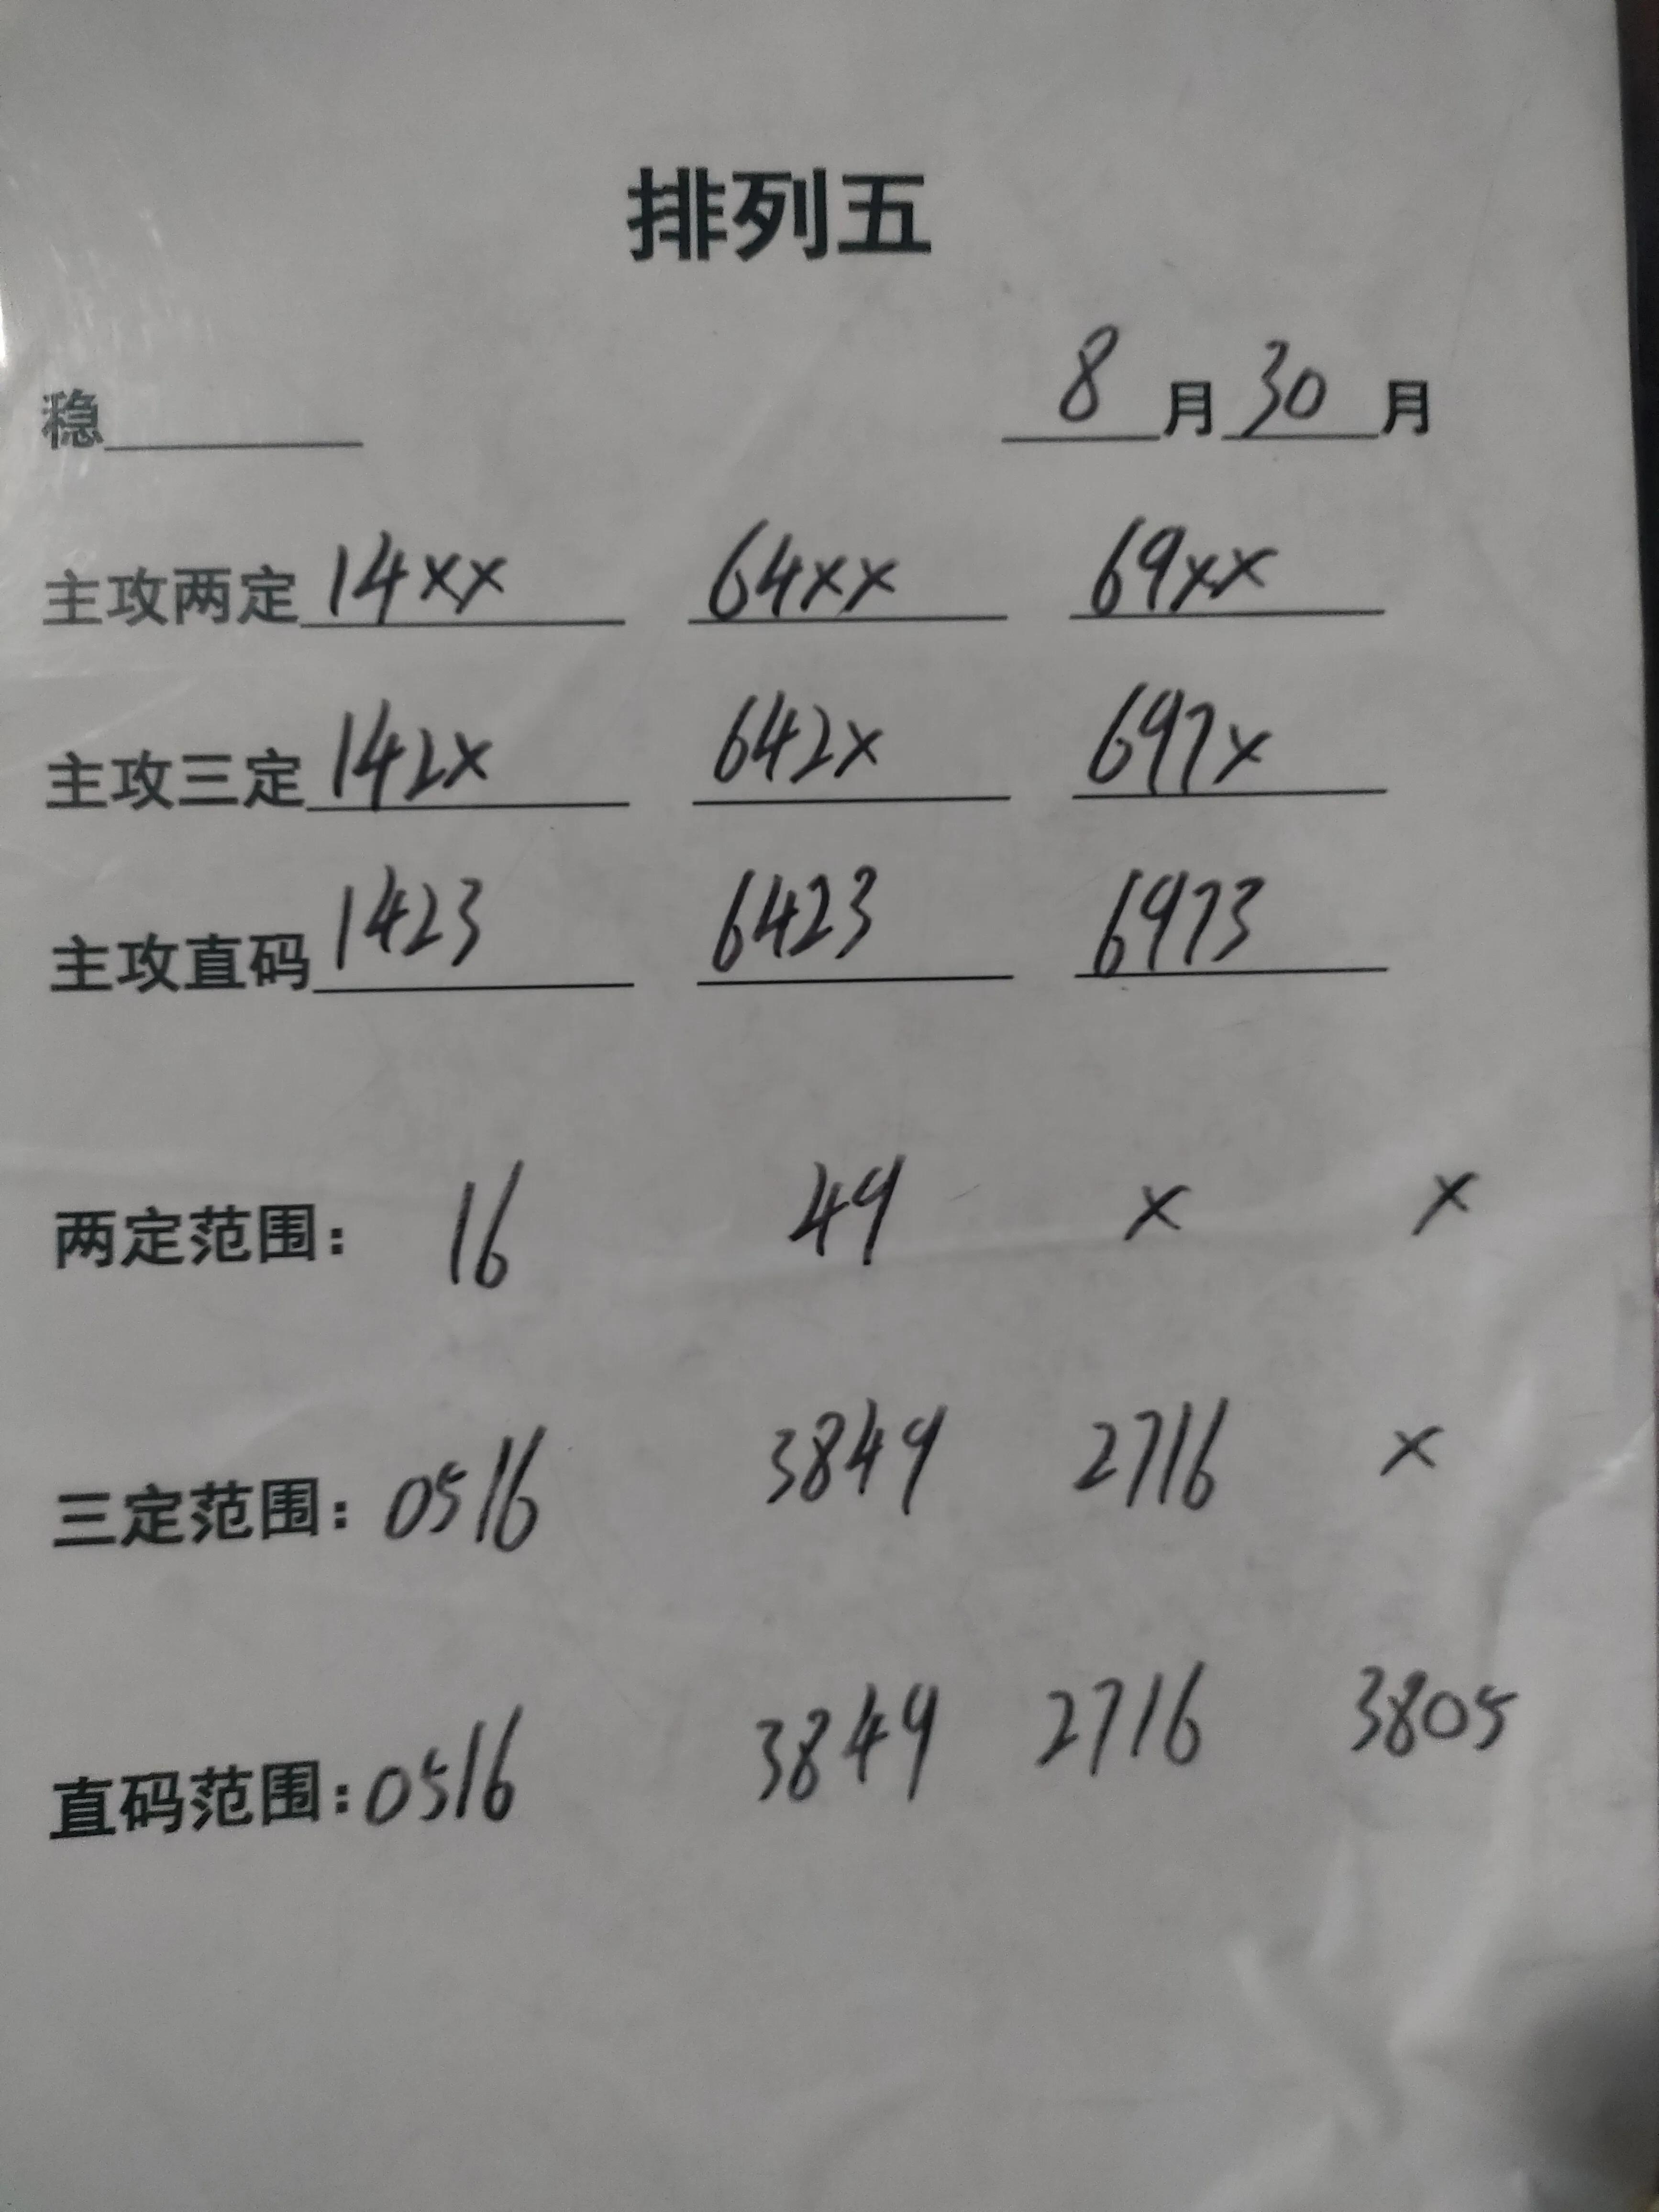 排列五
稳 8月30月
主攻两定 14xx 64xx 69xx
主攻三定 142x 642x 697x
主攻直码 1423 6423 6973
两定范围: 16 49 x x
三定范围: 0516 3849 2716 x
直码范围: 0516 3849 2716 3805